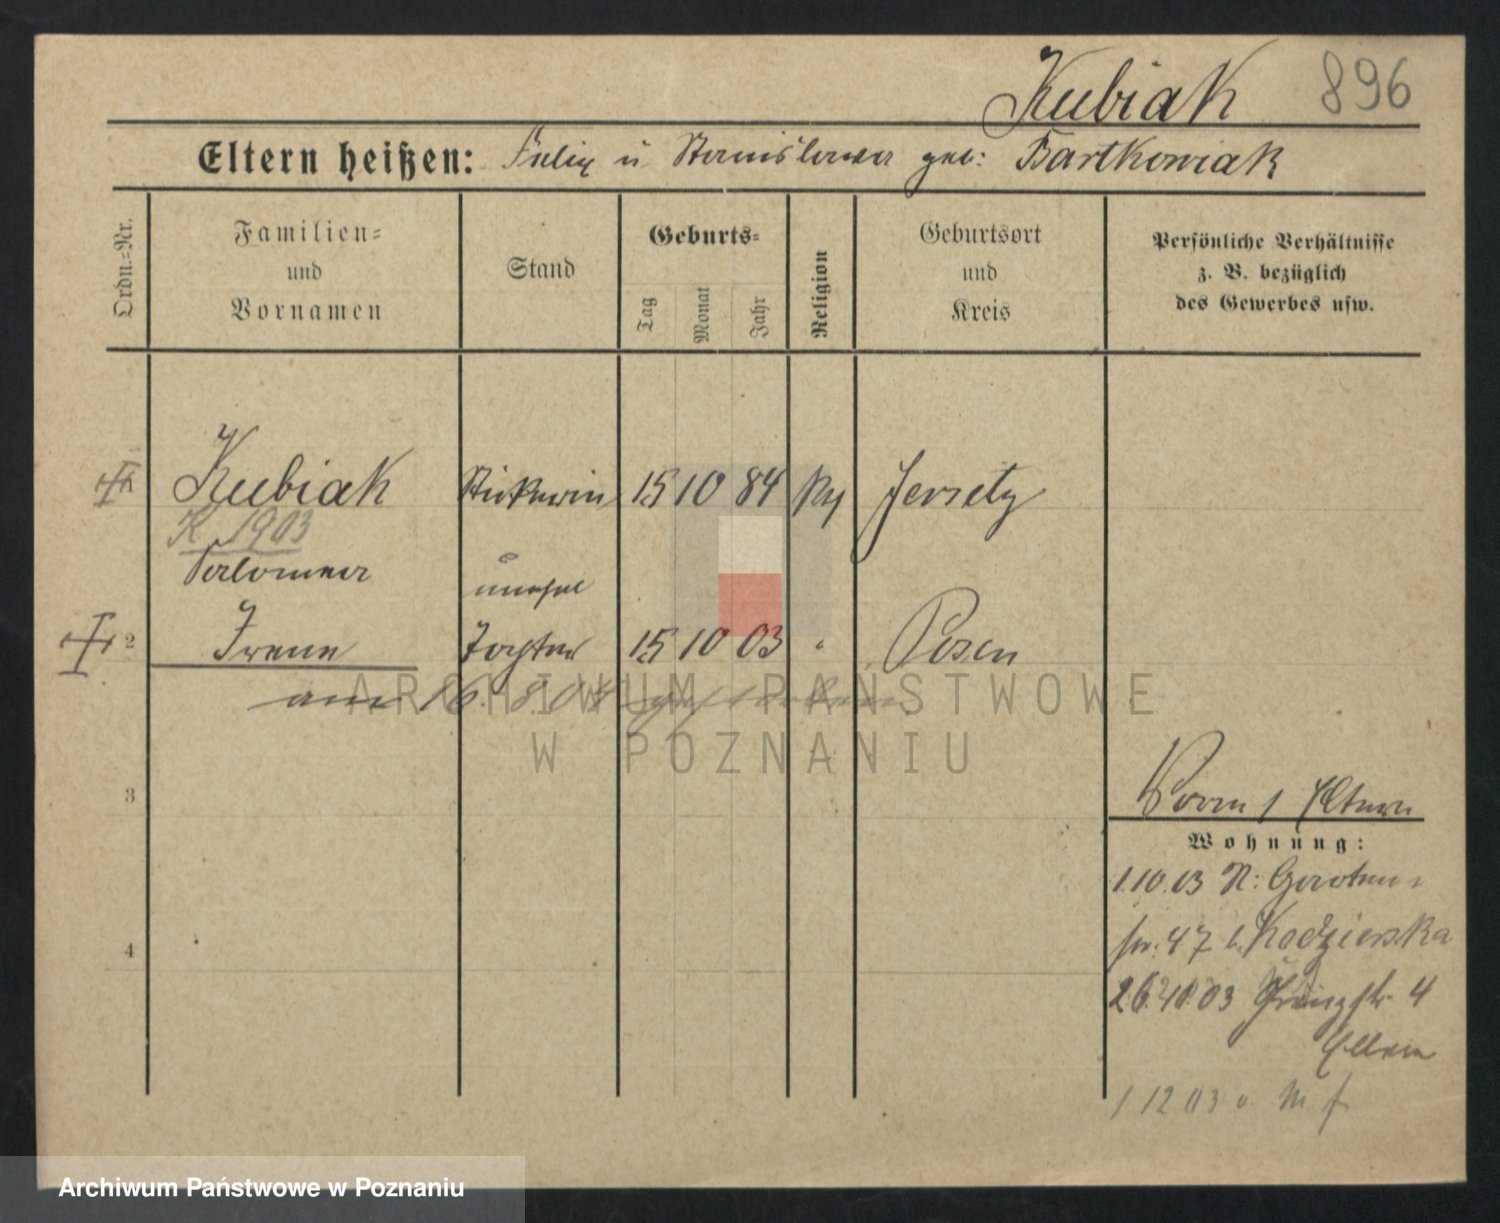 Kubiak 896
Eltern heißen: Felix u Stanislawa geb: Bartkowiak
Ordn.-Nr.
Familien- und Vornamen
Stand
Geburts-
Tag
Monat
Jahr
Religion
Geburtsort und Kreis
Persönliche Verhältnisse z. B. bezüglich des Gewerbes usw.
Kubiak Stickerin 15 10 84 Jersitz
K 1903
Salomea unehel
2 Irene Tochter 15 10 03 " Posen
am 16. 8. 04 gestorben.
ARCHIWUM PAŃSTWOWE
W POZNANIU
3
Eltern
Wohnung:
1.10.03 N: Garten-
str. 47 b. Kodzierska
03 4
Eltern
4
1 12 03 v.
Archiwum Państwowe w Poznaniu